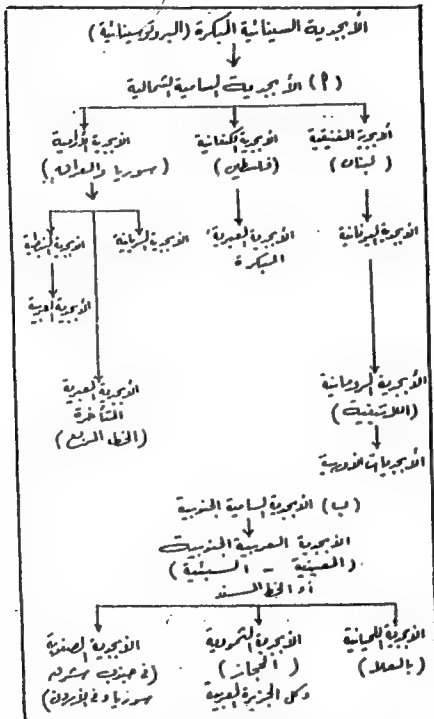 الأبجدية السينائية المبكرة (البروتوسينائية)
(أ) الأبجدية السامية الشمالية
الأبجدية الفينيقية
(لبنان)
الأبجدية الكنعانية
(فلسطين)
الأبجدية الآرامية
(سوريا والعراق)
الأبجدية اليونانية
الأبجدية العبرية
المبكرة
الأبجدية السريانية
الأبجدية النبطية
الأبجدية العربية
الأبجدية العبرية
المتأخرة
(الخط المربع)
الأبجدية الرومانية
(اللاتينية)
الأبجديات الأوربية
(ب) الأبجدية السامية الجنوبية
الأبجدية العربية الجنوبية
(المعينية - السبئية)
أو الخط المسند
الأبجدية اللحيانية
(بالعلا)
الأبجدية الثمودية
(الحجاز)
وكل الجزيرة العربية
الأبجدية الصفوية
(في جنوب شرق
سوريا وفي الأردن)